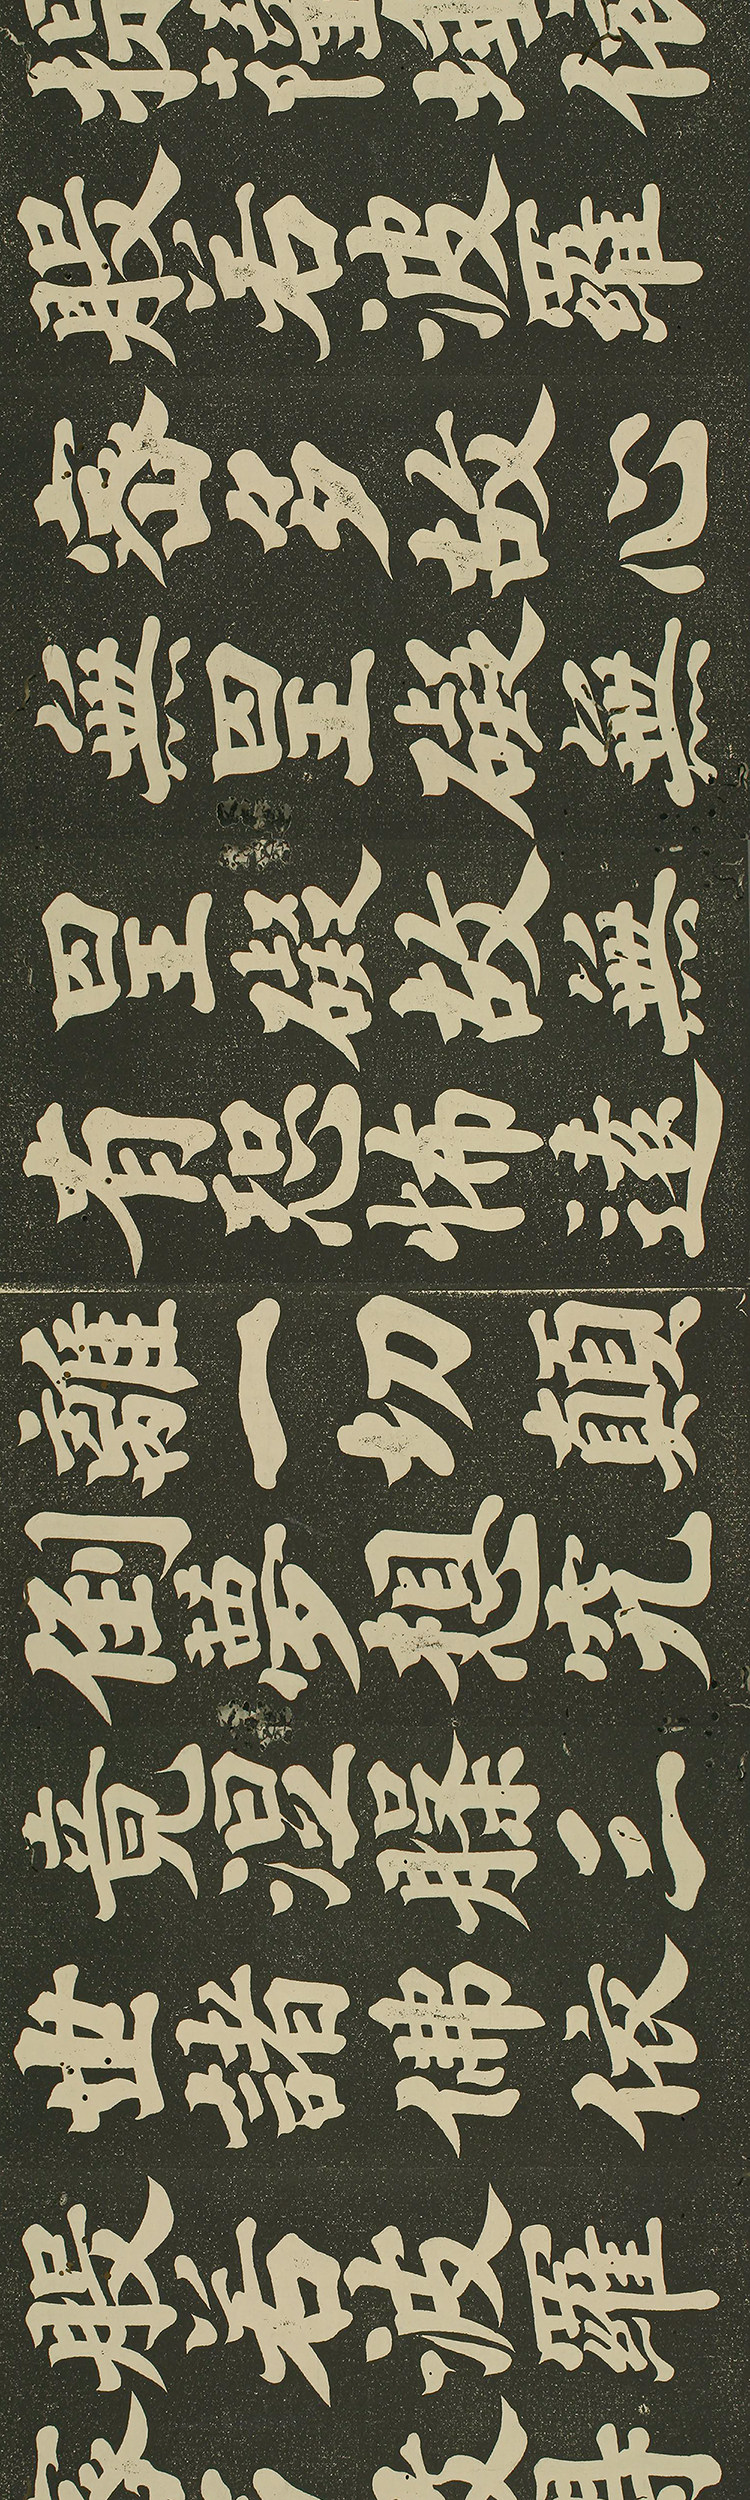 提薩埵依
般若波羅
密多故心
無罣礙無
罣礙故無
有恐怖遠
離一切顛
倒夢想究
竟涅槃三
世諸佛依
般若波羅